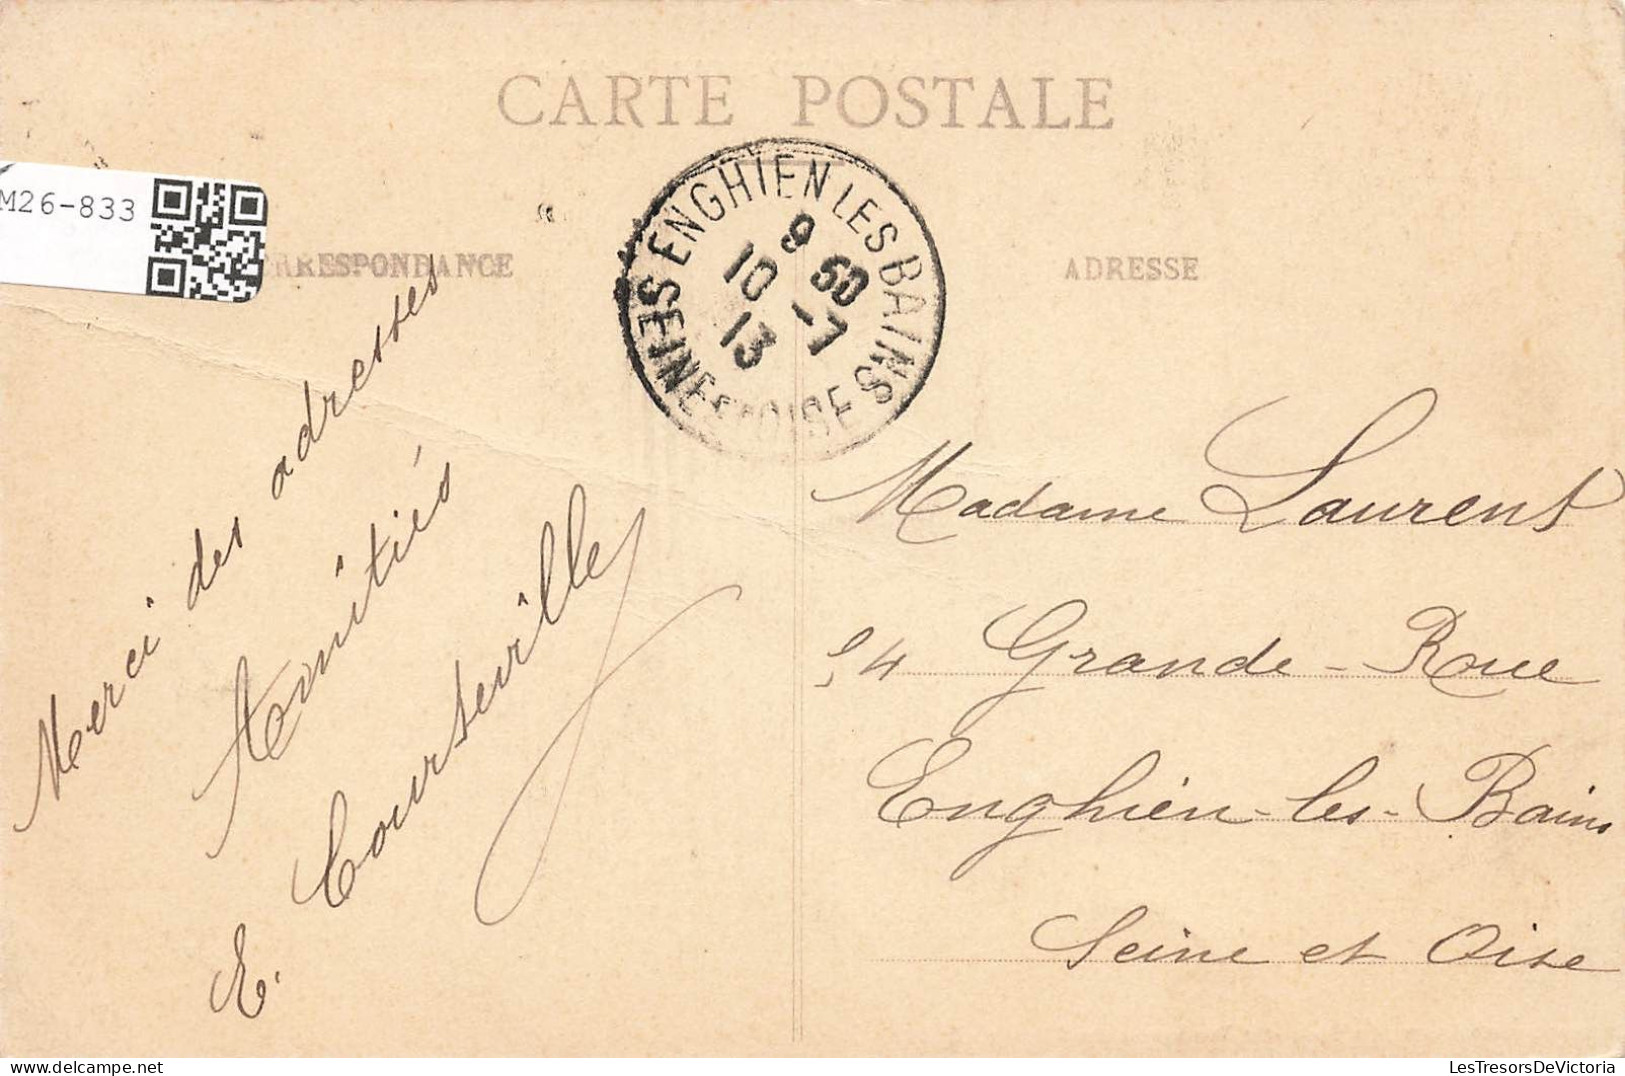 CARTE POSTALE
M26-833
CORRESPONDANCE
ADRESSE
ENGHIEN LES BAINS
SEINE ET OISE
9 50
10 -7
13
Merci des adresses
Amitiés
E. Courseville
Madame Laurent
54 Grande-Roue
Enghien-les-Bains
Seine et Oise
LesTresorsDeVictoria